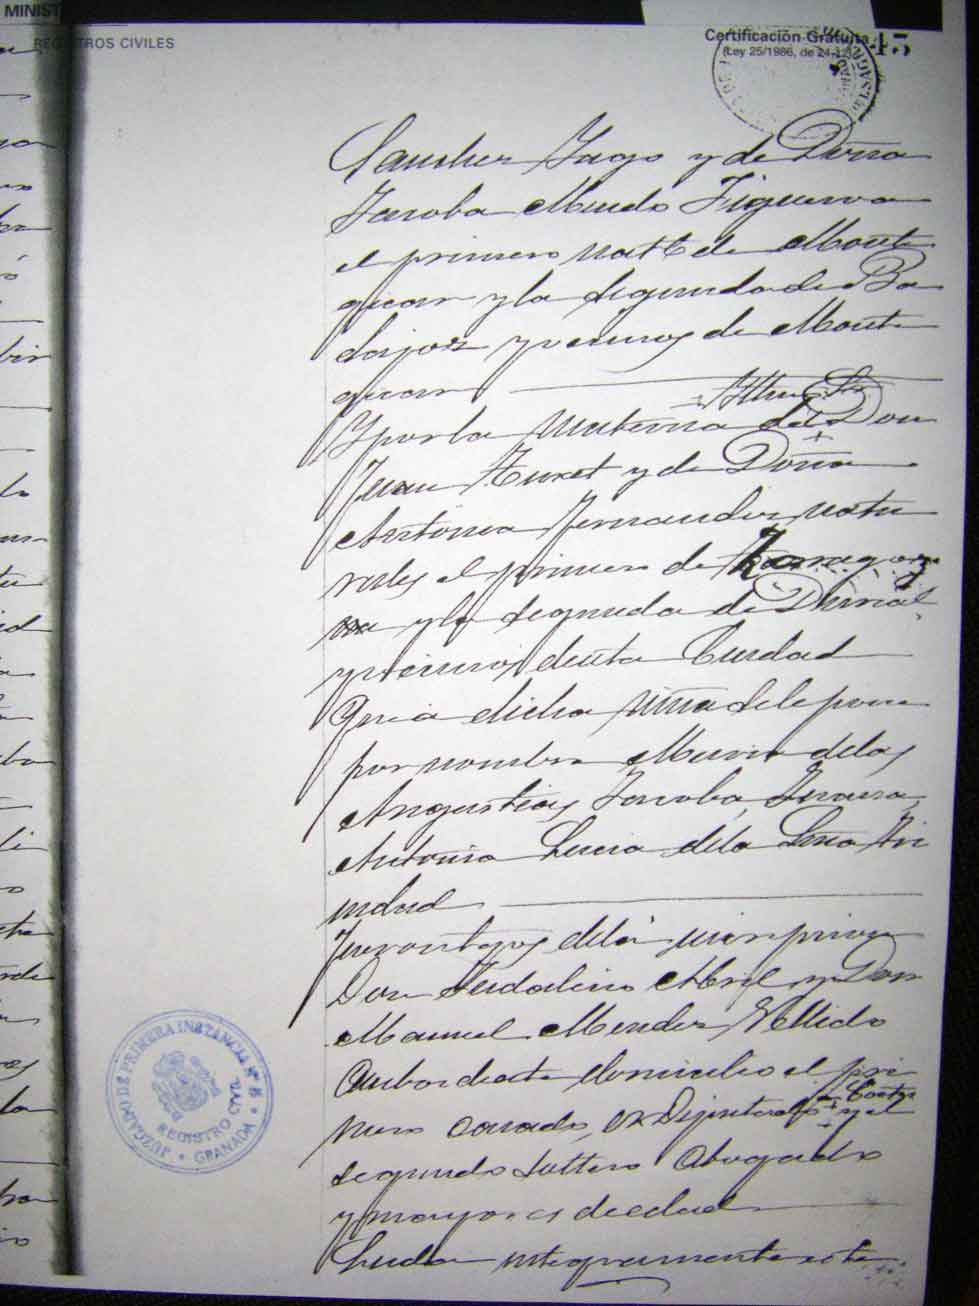 MINIST
REGISTROS CIVILES
Certificación Gratuita
(Ley 25/1986, de 24-12)
45
Sanchez Yago y de Doña
Jacoba Mudo Figueroa
el primero natl de Monte
gicar y la segunda de Ba
dajoz y vecinos de Monte
gicar
Iltre Sr
Y por la materna del Don
Juan y de Doña
Antonia Fernandez natu
rales el primero de Zaragoza
y la segunda de Durcal
y vecinos de esta Ciudad
Que a dicha niña se le pone
por nombre Maria de las
Angustias, Jacoba, Juana,
Antonia Lucia de la Sma Tri
nidad
Fueron testigos de la inscripcion
Don Indalecio Abril y Don
Manuel Mendez Vellido
ambos de este domicilio el pri
mero casado, ex Diputado a Cortes y el
segundo soltero Abogado
y mayores de edad
Leida integramente esta
JUZGADO DE PRIMERA INSTANCIA Nº 8
REGISTRO CIVIL
GRANADA